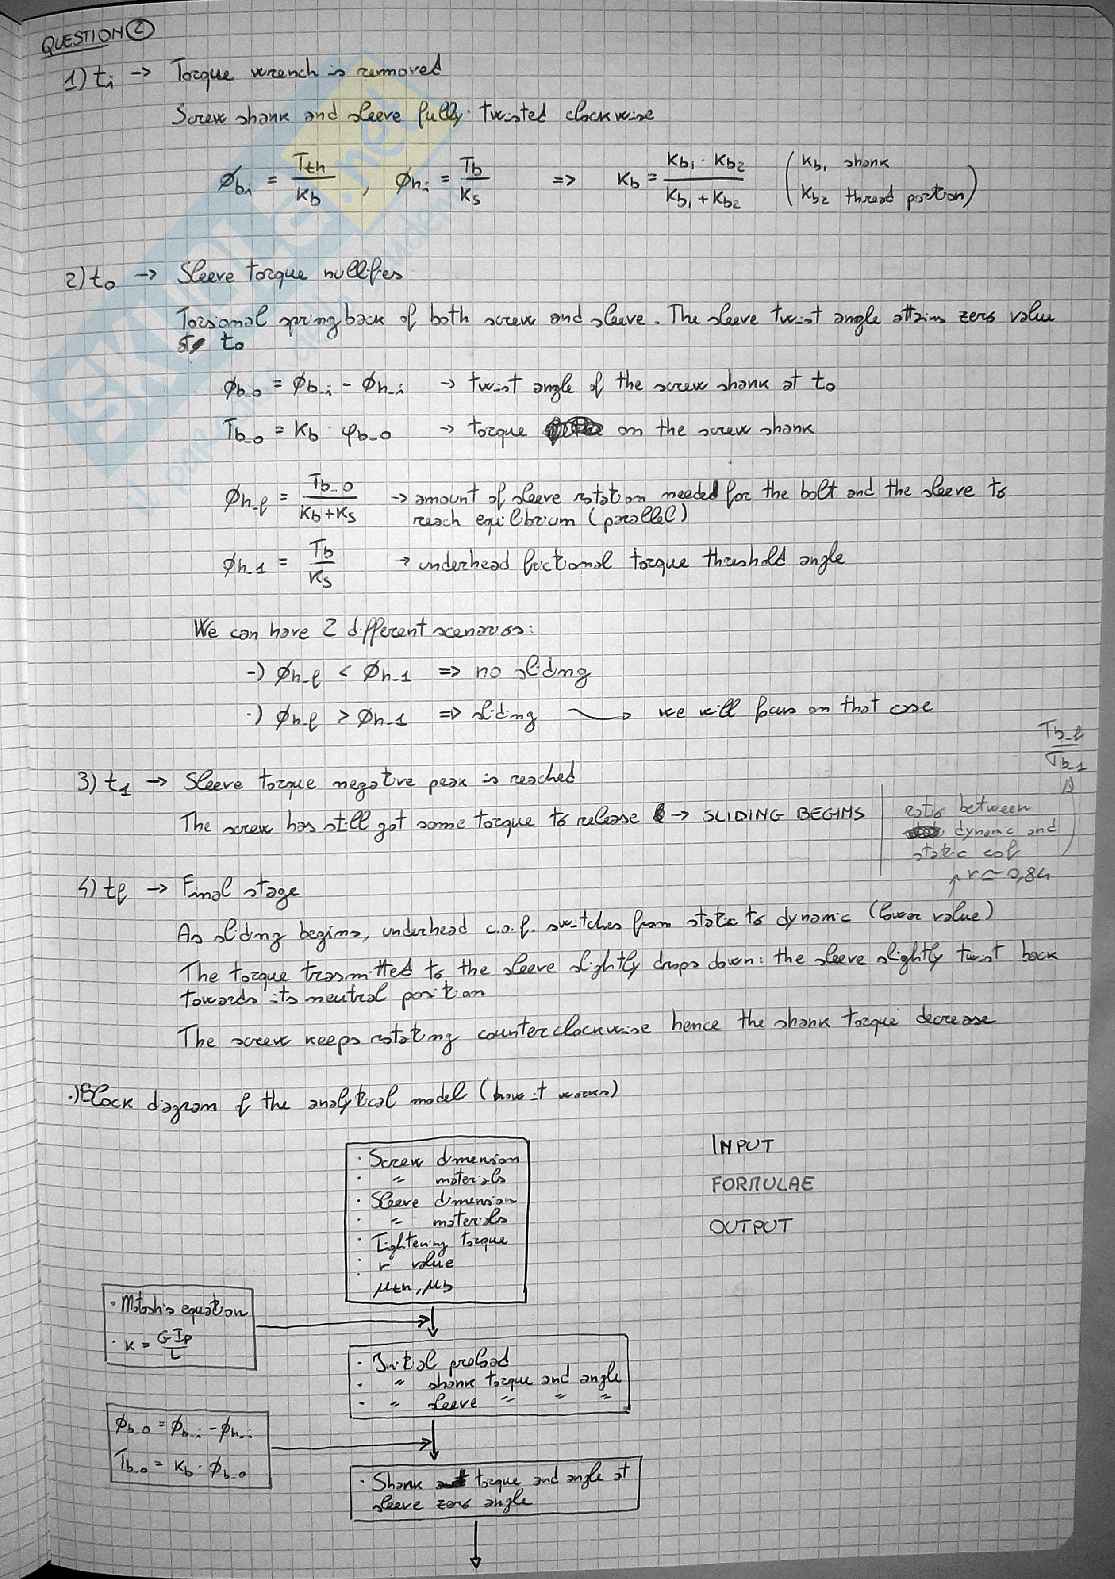 QUESTION ②
1) ti -> Torque wrench is removed
Screw shank and sleeve fully twisted clockwise
ϕb_i = Tth/Kb , ϕh_i = Tb/Ks => Kb = Kb1 · Kb2 / Kb1 + Kb2 (Kb1 shank
Kb2 thread portion)
2) t0 -> Sleeve torque nullifies
Torsional springback of both screw and sleeve. The sleeve twist angle attains zero value
t0
ϕb_0 = ϕb_i - ϕh_i -> twist angle of the screw shank at t0
Tb_0 = Kb · φb_0 -> torque on the screw shank
ϕh_f = Tb_0 / Kb+Ks -> amount of sleeve rotation needed for the bolt and the sleeve to
reach equilibrium (parallel)
ϕh_1 = Tb/Ks -> underhead frictional torque threshold angle
We can have 2 different scenarios:
-) ϕh_f < ϕh_1 => no sliding
·) ϕh_f > ϕh_1 => sliding -> we will focus on that case
Tb_f / Tb_1
3) t1 -> Sleeve torque negative peak is reached
The screw has still got some torque to release -> SLIDING BEGINS
ratio between
dynamic and
static cof
r ≈ 0,84
4) tf -> Final stage
As sliding begins, underhead c.o.f. switches from static to dynamic (lower value)
The torque trasmitted to the sleeve slightly drops down: the sleeve slightly twist back
towards its neutral position
The screw keeps rotating counterclockwise hence the shank torque decrease
·) Block diagram of the analytical model (how it works)
· Screw dimension
· " materials
· Sleeve dimension
· " materials
· Tightening torque
· r value
μth, μb
INPUT
FORMULAE
OUTPUT
· Motosh's equation
· K = G Ip / L
· Initial preload
· " shank torque and angle
· " sleeve " " "
ϕb_0 = ϕb_i - ϕh_i
Tb_0 = Kb · ϕb_0
· Shank torque and angle at
sleeve zero angle